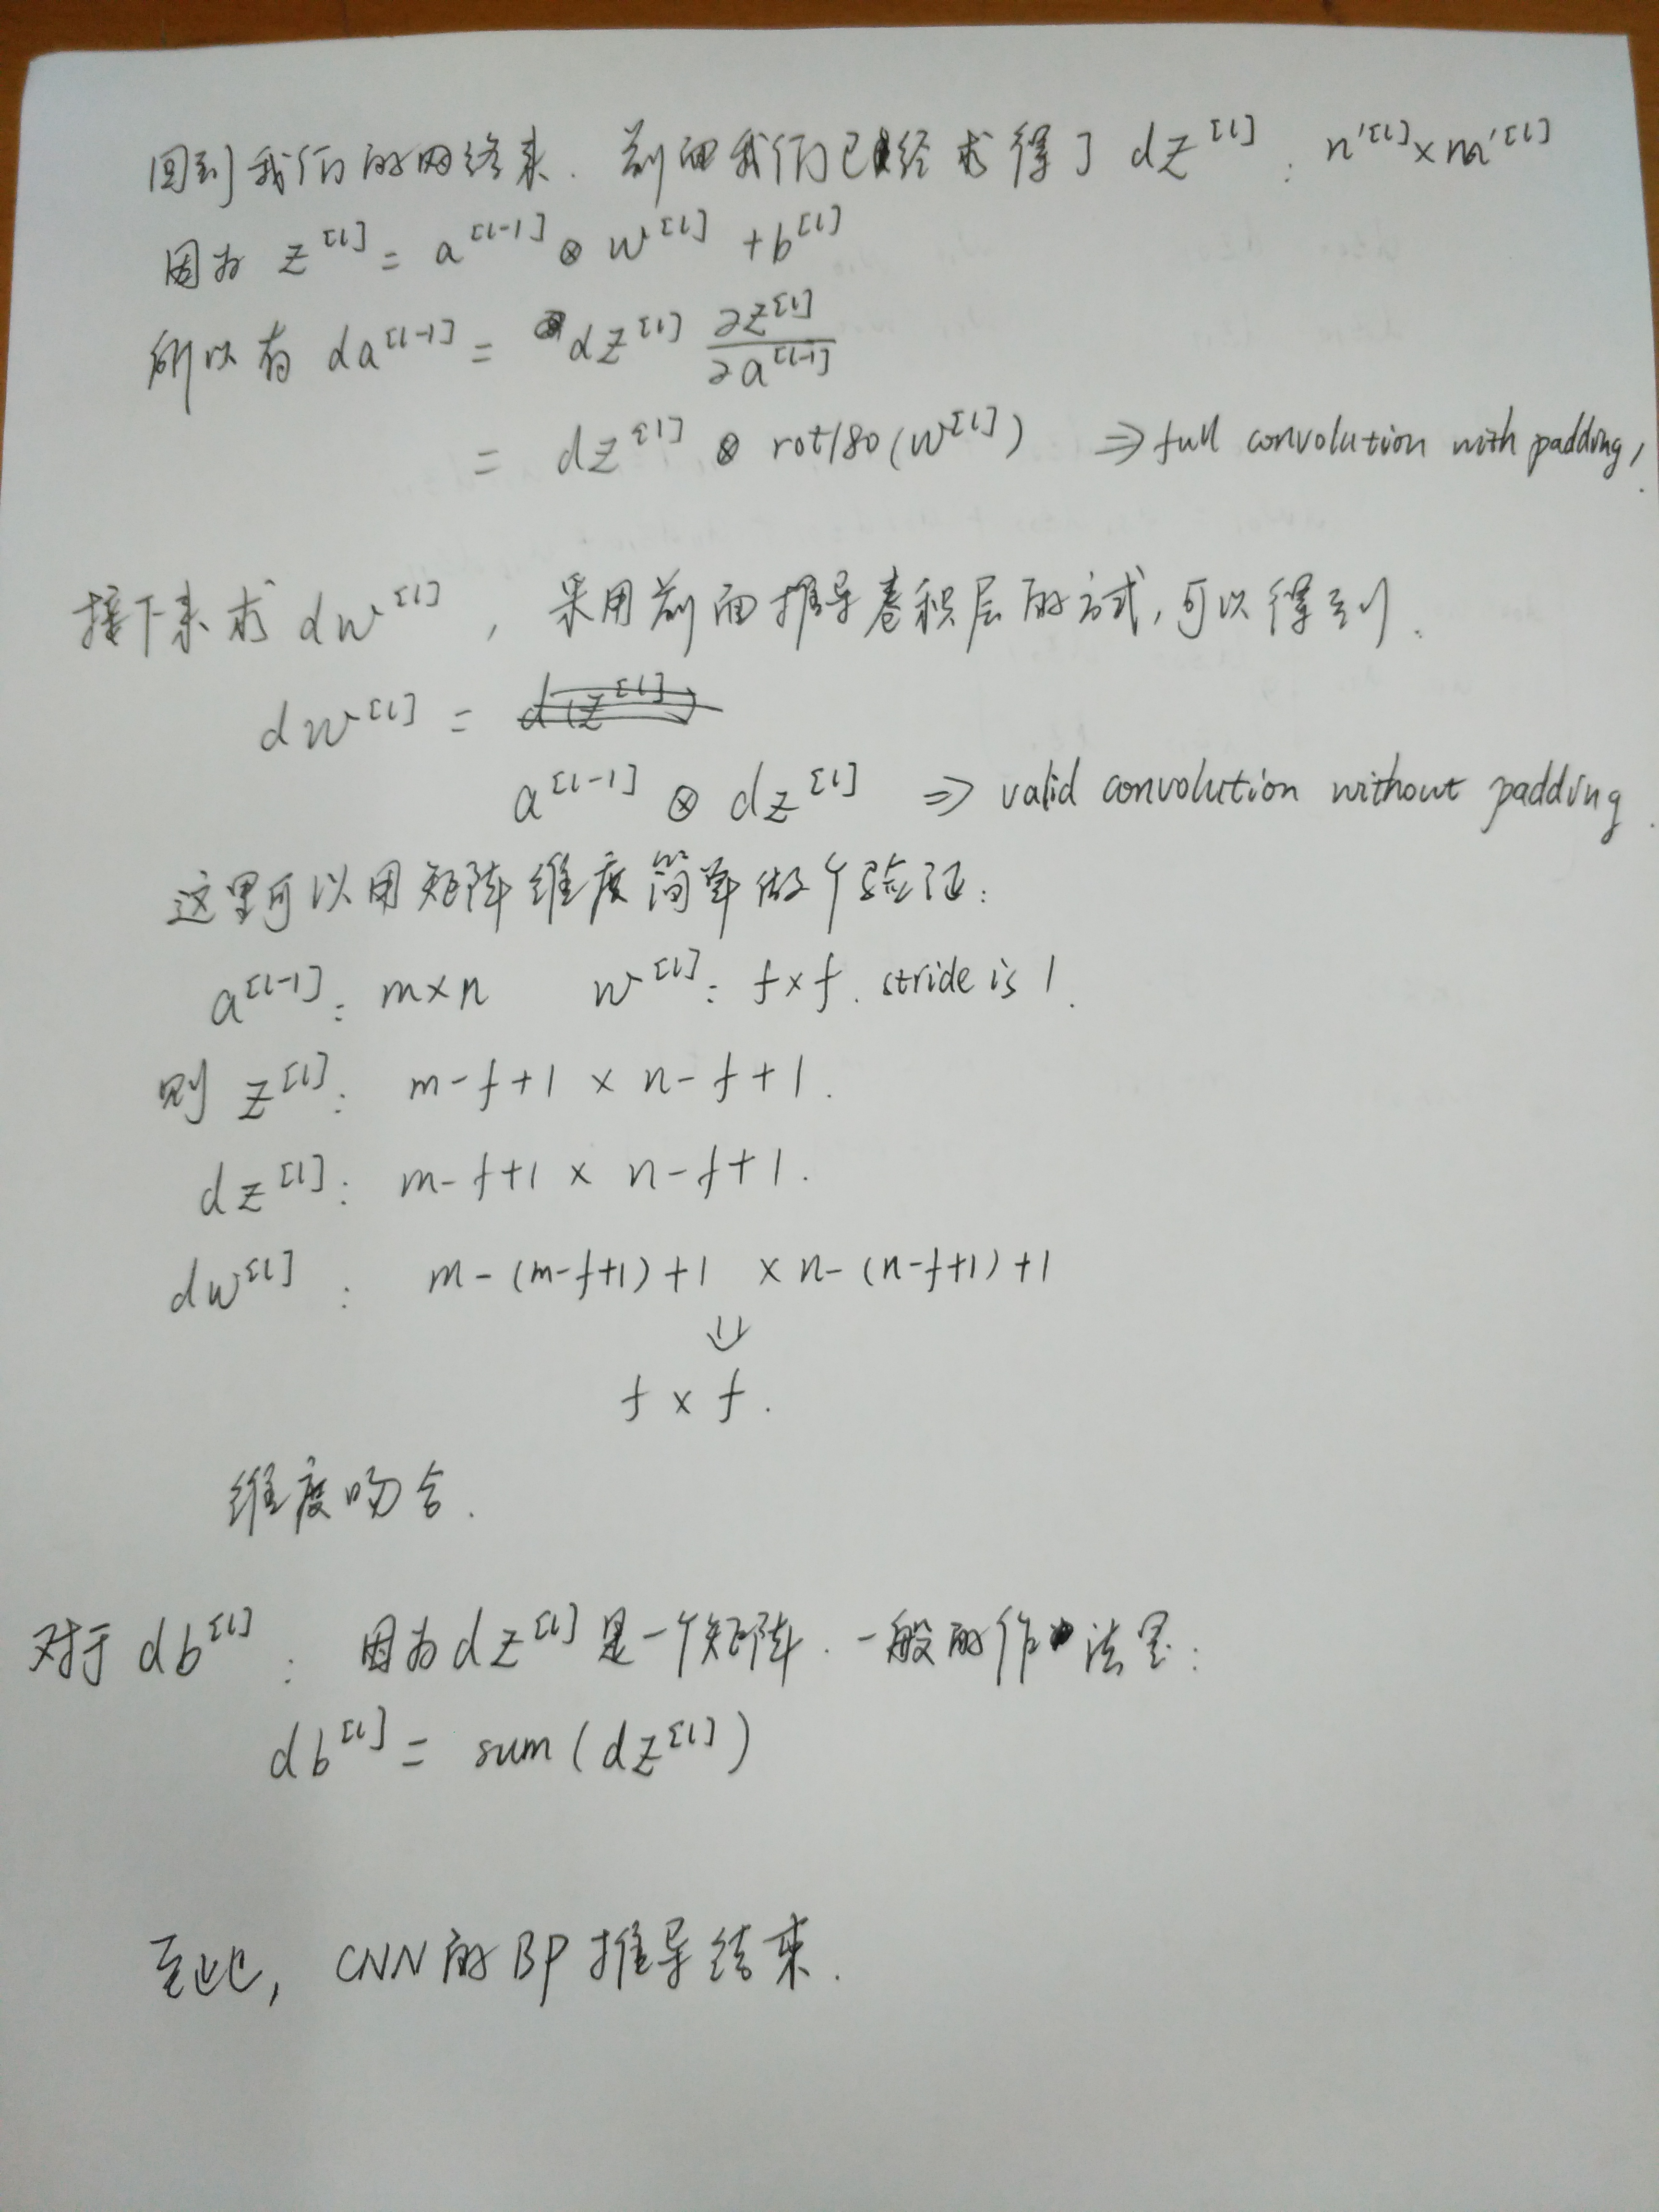 回到我们的网络来. 前面我们已经求得了 dz^[l] : n'^[l] × m'^[l]
因为 z^[l] = a^[l-1] ⊗ w^[l] + b^[l]
所以有 da^[l-1] = dz^[l] ∂z^[l] / ∂a^[l-1]
= dz^[l] ⊗ rot180(w^[l]) ⇒ full convolution with padding,
接下来求 dw^[l] , 采用前面推导卷积层的方式, 可以得到.
dw^[l] =
a^[l-1] ⊗ dz^[l] ⇒ valid convolution without padding.
这里可以用矩阵维度简单做个验证:
a^[l-1] : m×n w^[l] : f×f. stride is 1.
则 z^[l] : m-f+1 × n-f+1.
dz^[l] : m-f+1 × n-f+1.
dw^[l] : m-(m-f+1)+1 × n-(n-f+1)+1
⇓
f × f.
维度吻合.
对于 db^[l] : 因为 dz^[l] 是一个矩阵. 一般的作法是:
db^[l] = sum(dz^[l])
至此, CNN的BP推导结束.